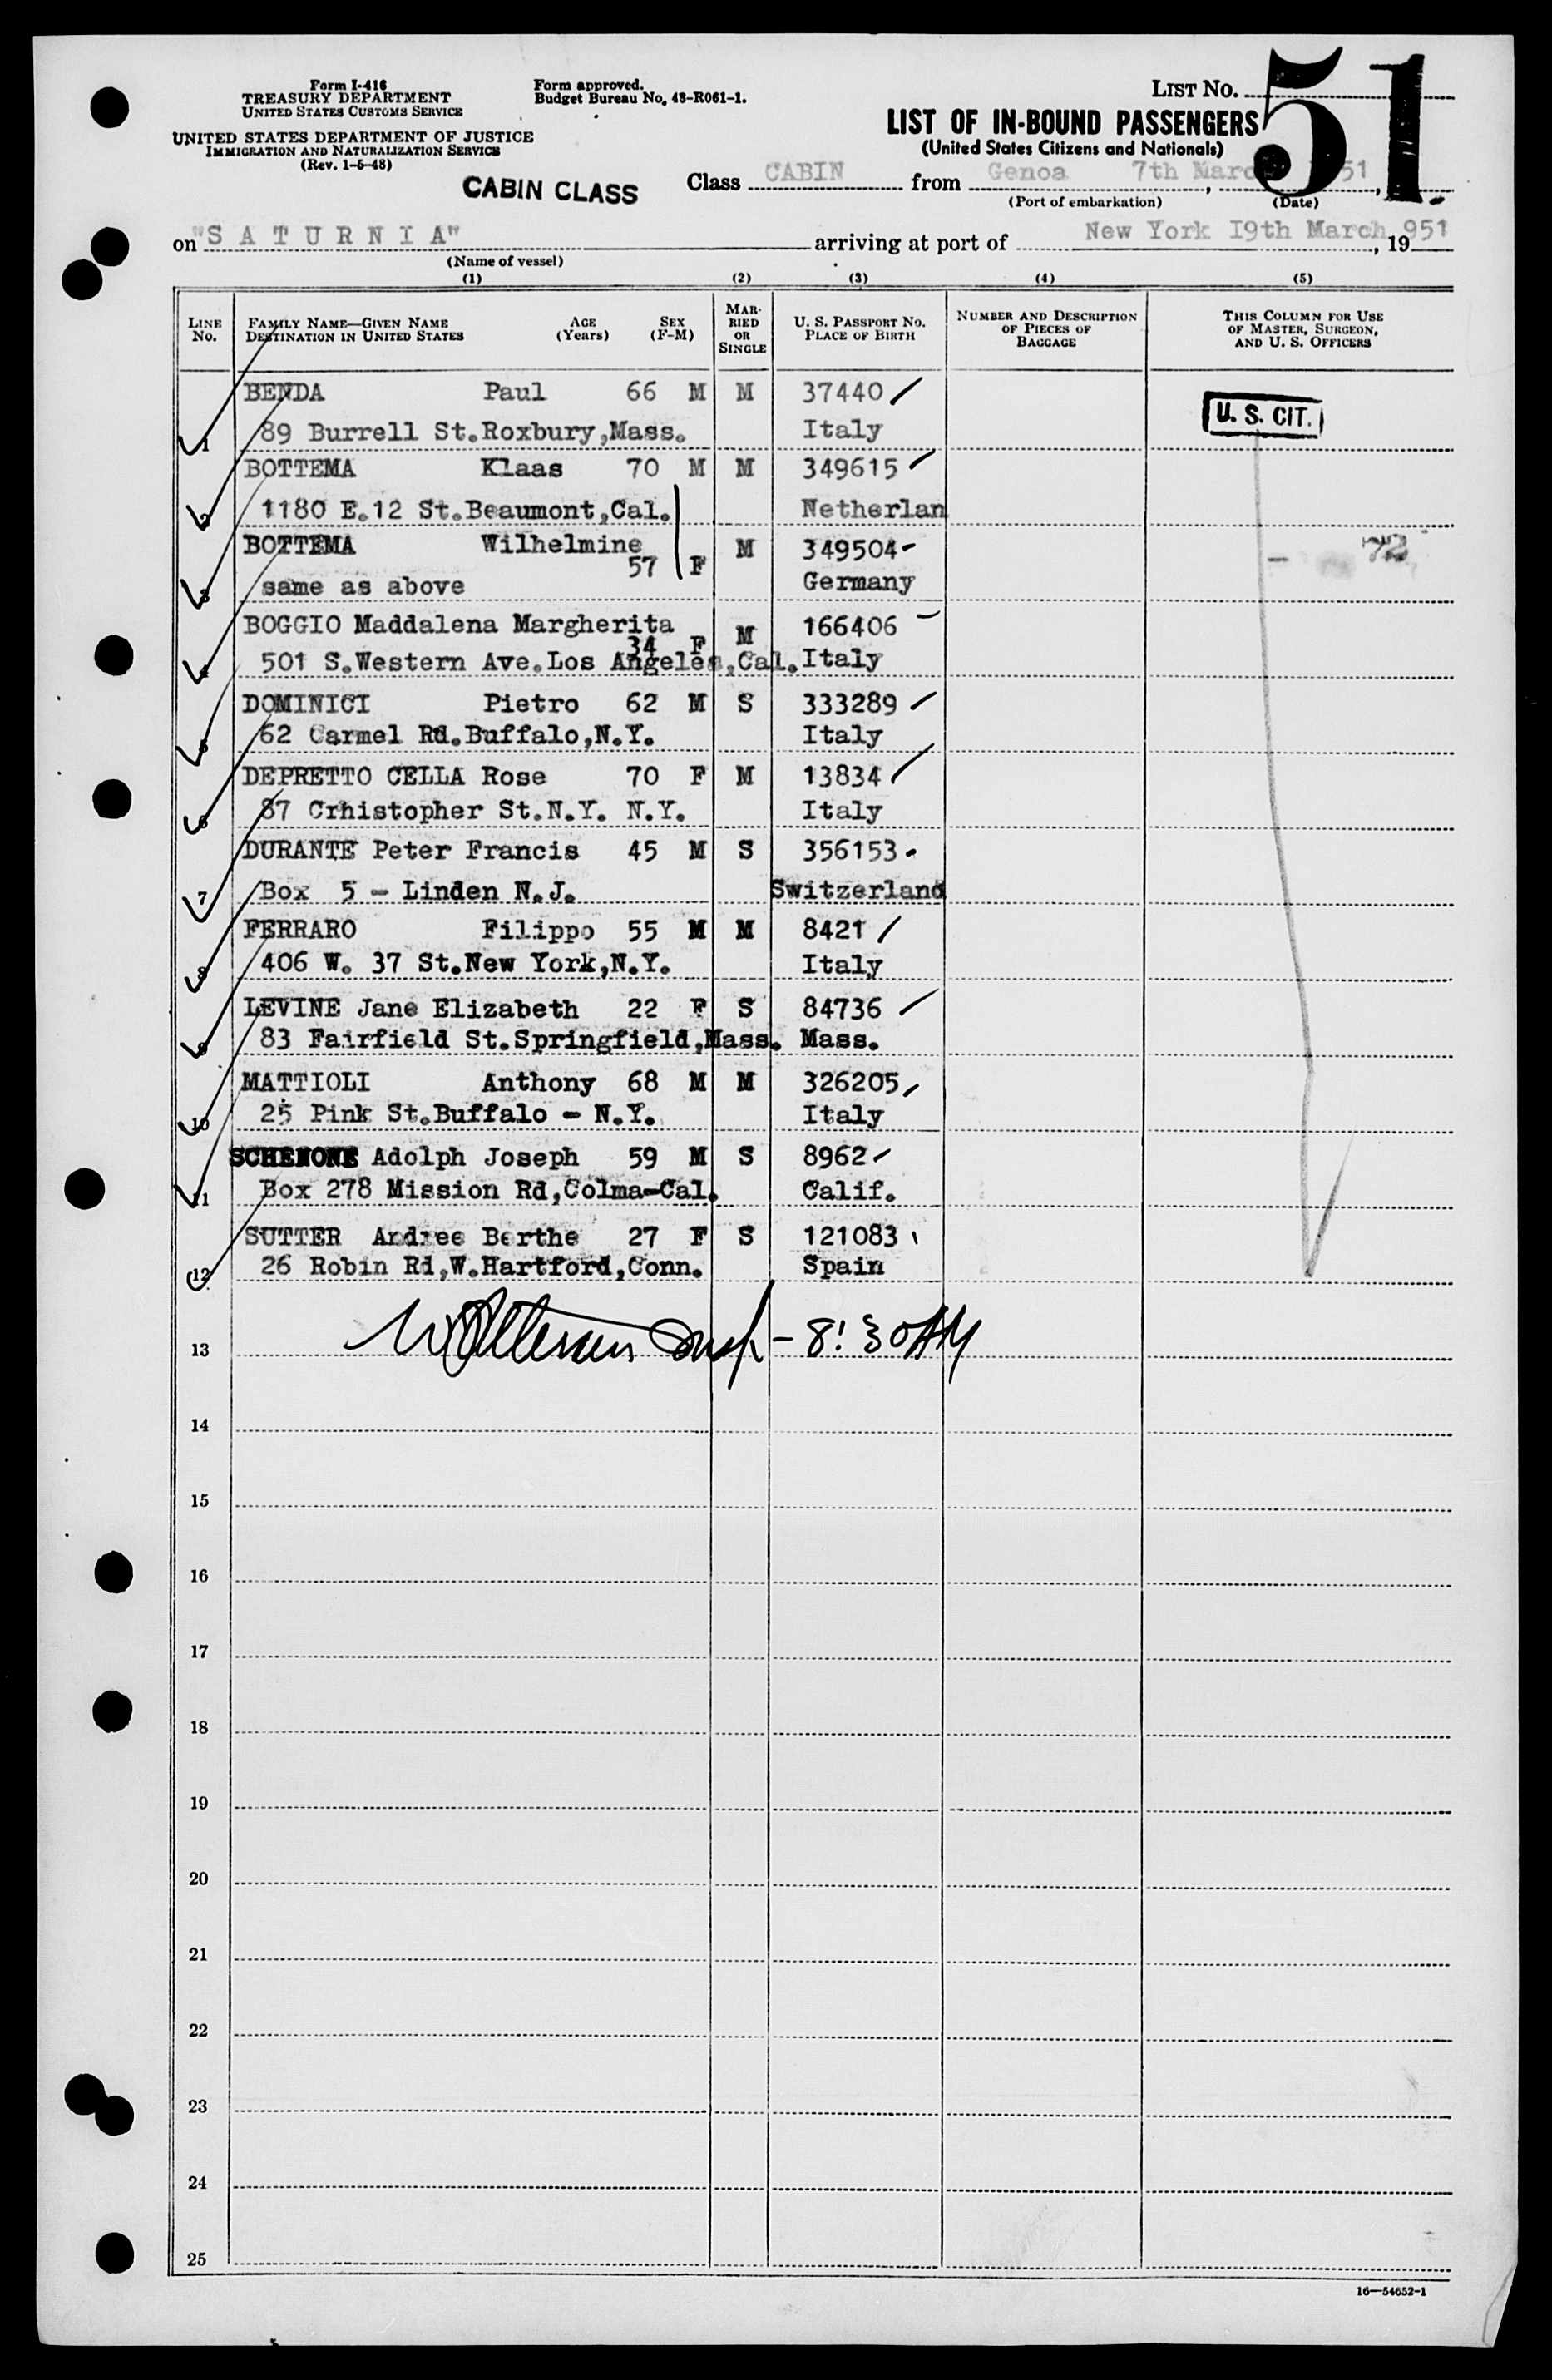 Form I-416
TREASURY DEPARTMENT
UNITED STATES CUSTOMS SERVICE
UNITED STATES DEPARTMENT OF JUSTICE
IMMIGRATION AND NATURALIZATION SERVICE
(Rev. 1-5-48)
Form approved.
Budget Bureau No. 43-R061-1.
LIST NO. 51.
LIST OF IN-BOUND PASSENGERS
(United States Citizens and Nationals)
CABIN CLASS
Class CABIN from Genoa 7th March, 51,
(Port of embarkation) (Date)
on "SATURNIA" arriving at port of New York 19th March, 19 951
(Name of vessel)
(1) (2) (3) (4) (5)
LINE NO. FAMILY NAME—GIVEN NAME DESTINATION IN UNITED STATES AGE (Years) SEX (F-M) MARRIED OR SINGLE U. S. PASSPORT NO. PLACE OF BIRTH NUMBER AND DESCRIPTION OF PIECES OF BAGGAGE THIS COLUMN FOR USE OF MASTER, SURGEON, AND U. S. OFFICERS
BENDA Paul 66 M M 37440
U. S. CIT.
1 89 Burrell St.Roxbury,Mass. Italy
BOTTEMA Klaas 70 M M 349615
2 1180 E.12 St.Beaumont,Cal. Netherlan
BOTTEMA Wilhelmine 57 F M 349504 - 72
3 same as above Germany
BOGGIO Maddalena Margherita 34 F M 166406
4 501 S.Western Ave.Los Angeles,Cal. Italy
DOMINICI Pietro 62 M S 333289
5 62 Carmel Rd.Buffalo,N.Y. Italy
DEPRETTO CELLA Rose 70 F M 13834
6 87 Crhistopher St.N.Y. N.Y. Italy
DURANTE Peter Francis 45 M S 356153
7 Box 5 - Linden N.J. Switzerland
FERRARO Filippo 55 M M 8421
8 406 W. 37 St.New York,N.Y. Italy
LEVINE Jane Elizabeth 22 F S 84736
9 83 Fairfield St.Springfield,Mass. Mass.
MATTIOLI Anthony 68 M M 326205
10 25 Pink St.Buffalo - N.Y. Italy
SCHENONE Adolph Joseph 59 M S 8962
11 Box 278 Mission Rd,Colma-Cal. Calif.
SUTTER Andree Berthe 27 F S 121083
12 26 Robin Rd,W.Hartford,Conn. Spain
13 - 8:30AM
14
15
16
17
18
19
20
21
22
23
24
25
16—54652-1